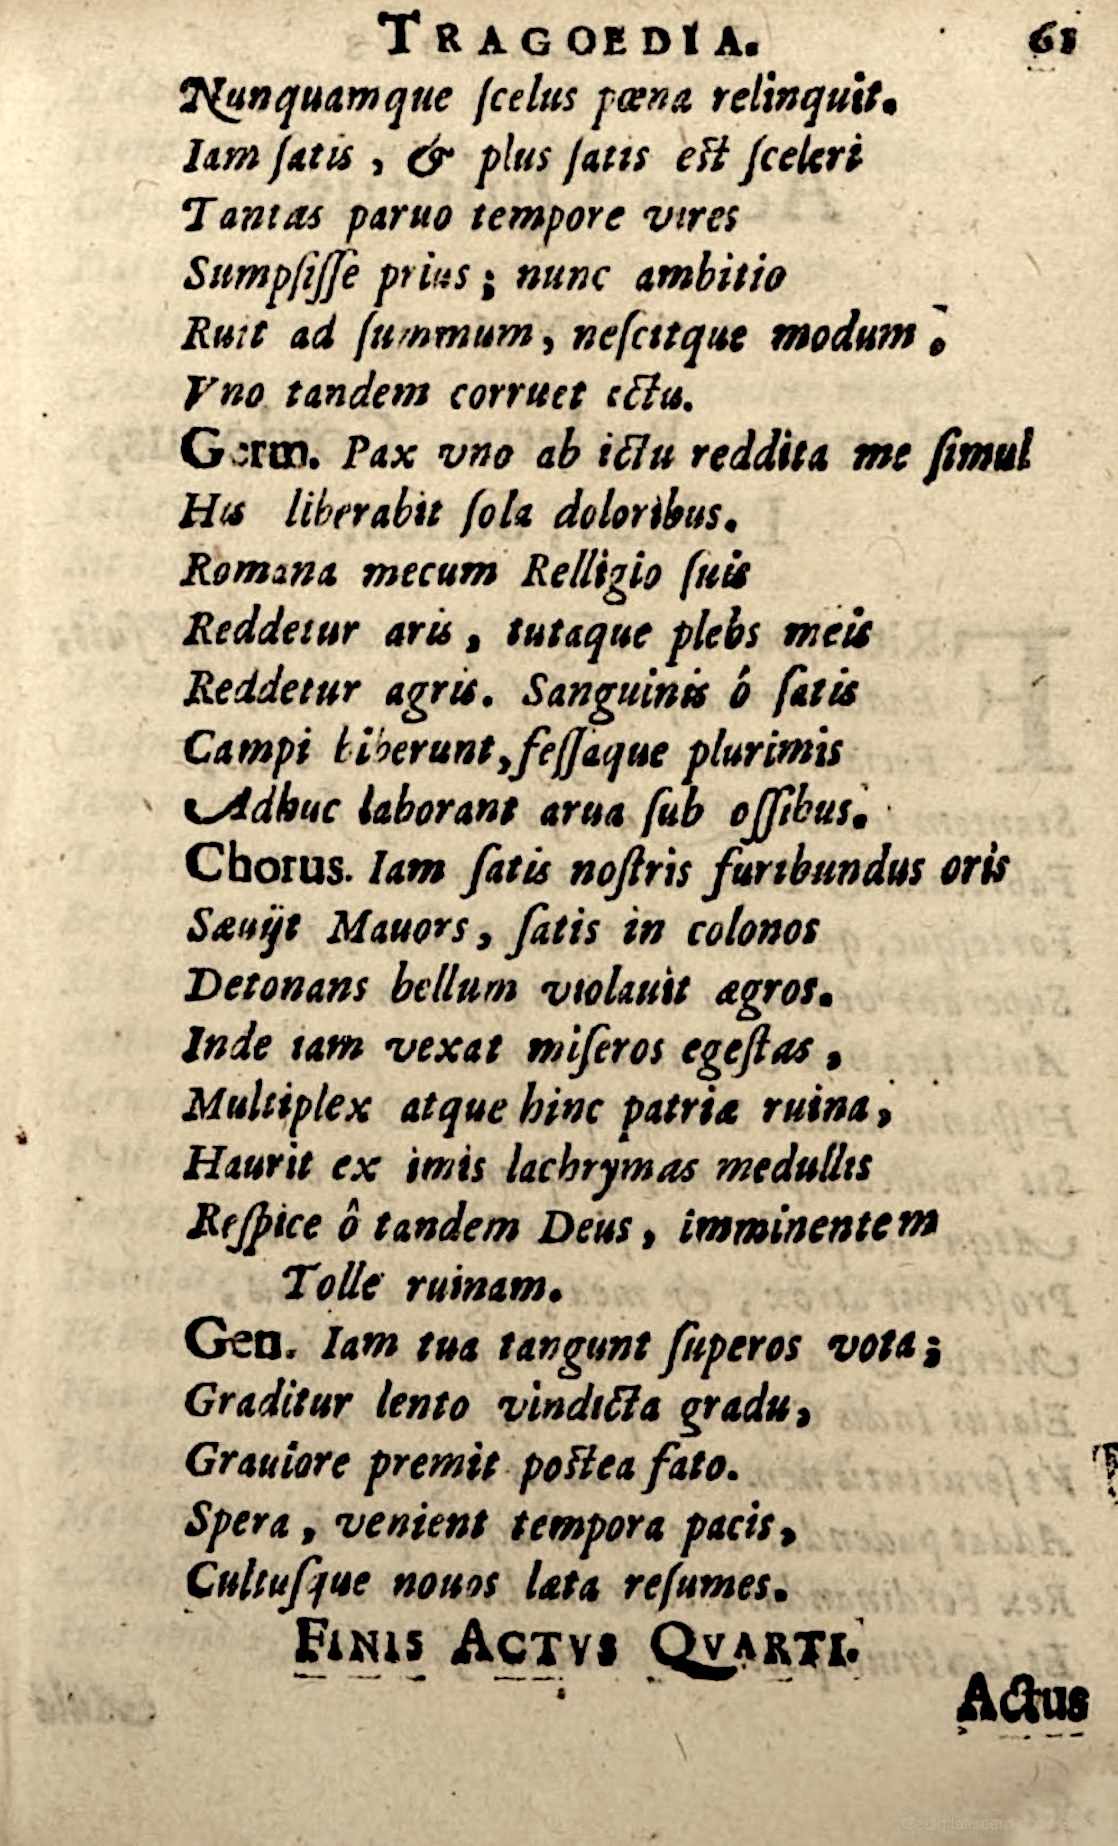 TRAGOEDIA. 61
Nunquamque ſcelus pœna relinquit.
Iam ſatis, & plus ſatis eſt ſceleri
Tantas paruo tempore vires
Sumpſiſſe prius; nunc ambitio
Ruit ad ſummum, neſcitque modum.
Vno tandem corruet ictu.
Germ. Pax vno ab ictu reddita me ſimul
His liberabit ſola doloribus.
Romana mecum Relligio ſuis
Reddetur aris, tutaque plebs meis
Reddetur agris. Sanguinis ó ſatis
Campi biberunt, feſſaque plurimis
Adhuc laborant arua ſub oſſibus.
Chorus. Iam ſatis noſtris furibundus oris
Sæuijt Mauors, ſatis in colonos
Detonans bellum violauit ægros.
Inde iam vexat miſeros egeſtas,
Multiplex atque hinc patriæ ruina,
Haurit ex imis lachrymas medullis
Reſpice ô tandem Deus, imminentem
Tolle ruinam.
Gen. Iam tua tangunt ſuperos vota;
Graditur lento vindicta gradu,
Grauiore premit poſtea fato.
Spera, venient tempora pacis,
Cultuſque nouos læta reſumes.
FINIS ACTVS QVARTI.
Actus